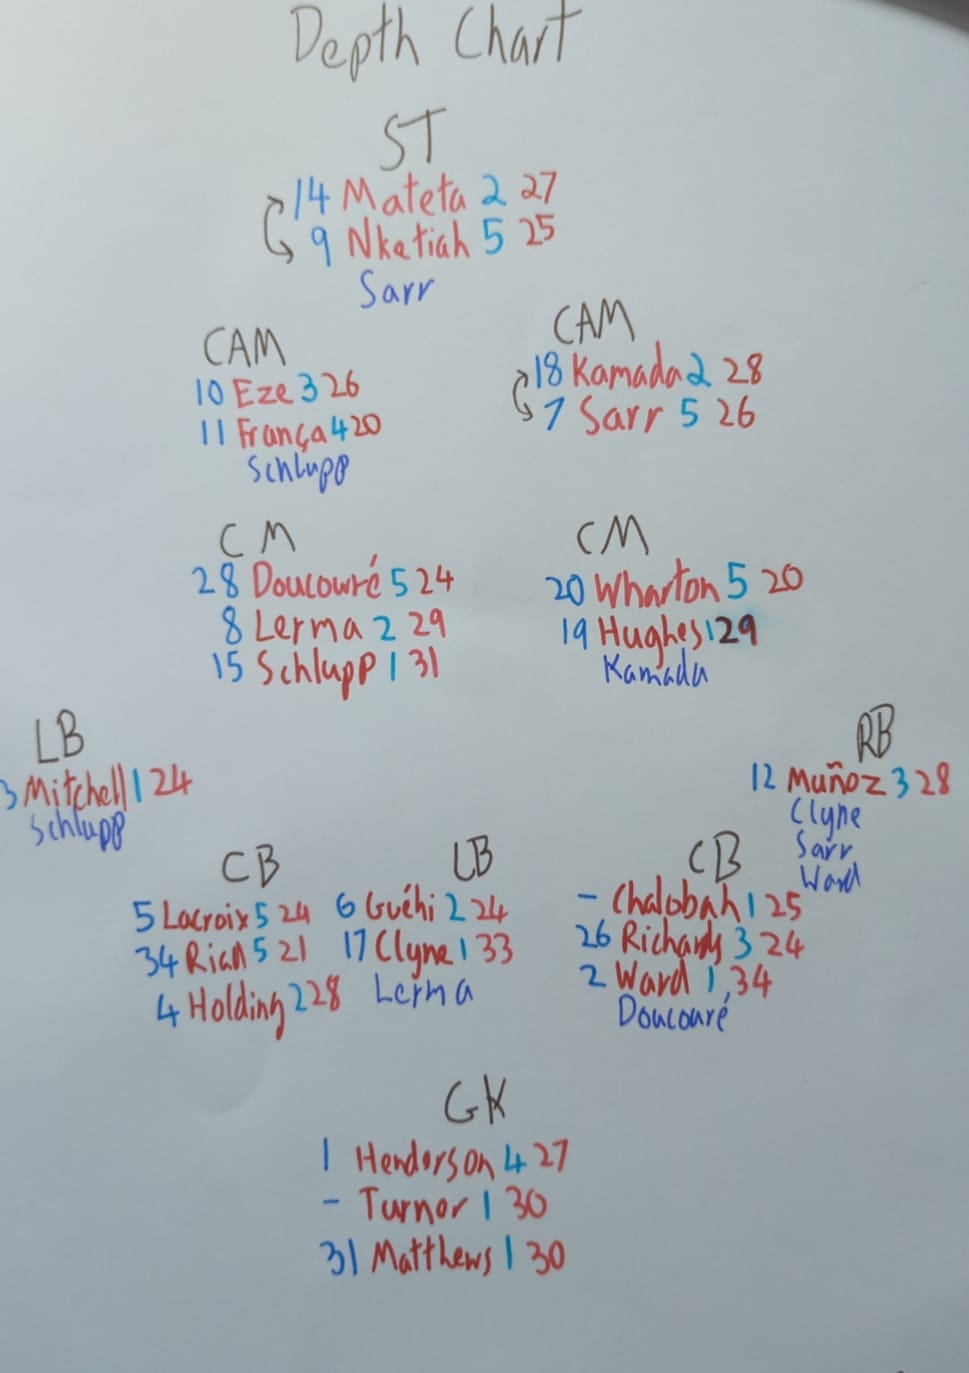 Depth Chart
ST
14 Mateta 2 27
9 Nketiah 5 25
Sarr
CAM
10 Eze 3 26
11 França 4 20
Schlupp
CAM
18 Kamada 2 28
7 Sarr 5 26
CM
28 Doucouré 5 24
8 Lerma 2 29
15 Schlupp 1 31
CM
20 Wharton 5 20
19 Hughes 1 29
Kamada
LB
3 Mitchell 1 24
Schlupp
RB
12 Muñoz 3 28
Clyne
Sarr
Ward
CB
5 Lacroix 5 24
34 Riad 5 21
4 Holding 2 28
CB
6 Guéhi 2 24
17 Clyne 1 33
Lerma
CB
- Chalobah 1 25
26 Richards 3 24
2 Ward 1, 34
Doucouré
GK
1 Henderson 4 27
- Turner 1 30
31 Matthews 1 30